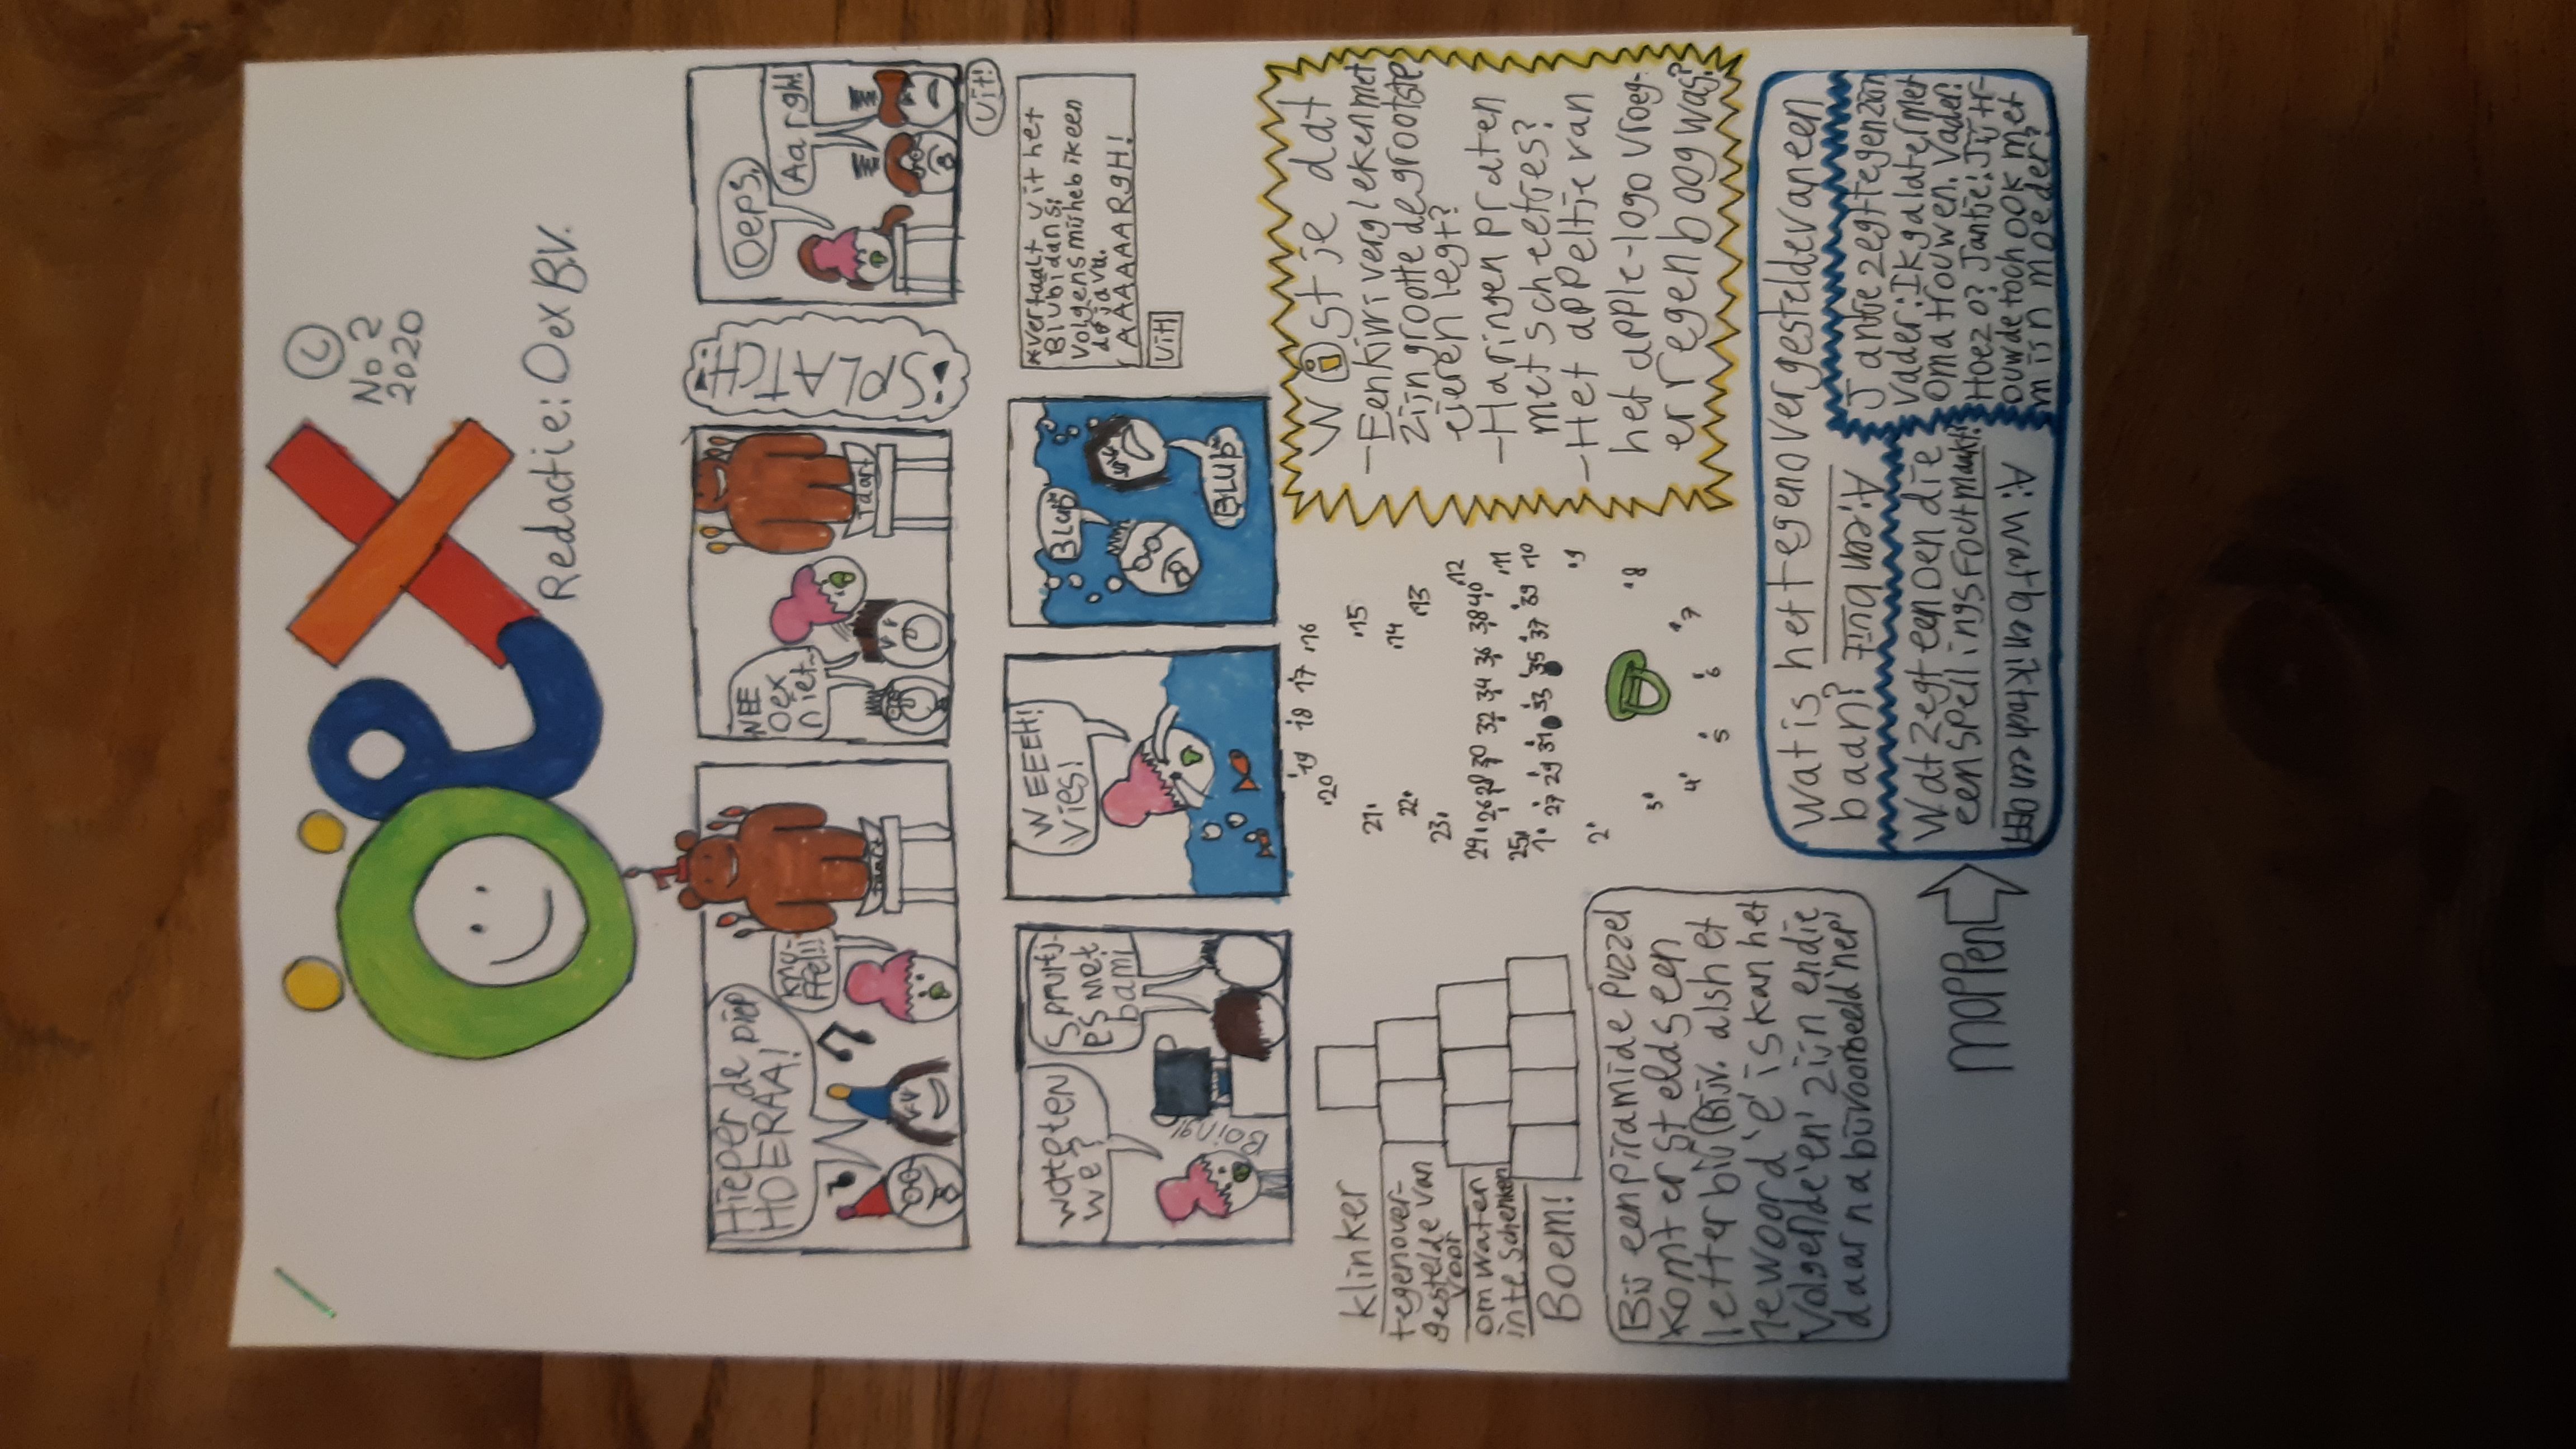 öex
©
No 2
2020
Redactie: Oex B.V.
Hieper de piep
HOERAA!
Knu-
ffel!!
taart
NEE
Oex
niet...
Taart
SPLATCH!
Oeps.
Aargh!
Uit!
wat eten
we?
Boing!
Spruitj-
es met
bami
WEEEH!
Vies!
BLUB*
BLUB*
*vertaalt uit het
Blubidans:
Volgens mij heb ik een
deja vu.
AAAAAARGH!
Uit!
klinker
tegenover-
gestelde van
voor
om water
in te schenken
Boem!
Bij een piramide puzzel
komt er stelds een
letter bij (Bijv. als het
1e woord 'e' is kan het
volgende 'en' zijn en die
daarna bijvoorbeeld 'nep'
19 18 17 16
20
21 15
22 14
23 13
12
29 26 28 30 32 34 36 38 40
11
25
1 27 29 31 33 35 37 39 10
2 9
3 8
4 7
5 6
Wist je dat
-Een kiwi vergleken met
zijn grootte de grootste
eieren legt?
-Haringen praten
met scheetjes?
-Het appeltje van
het apple-logo vroeg-
er regenboog was?
moppen
wat is het tegenovergestelde van een
baan? A: een buit
Wat zegt een oen die
een spellingsfout maakt?
A: wat ben ik toch een
Jantje zegt tegen zijn
vader: Ik ga later met
oma trouwen. Vader:
Hoezo? Jantje: Jij tr-
ouwde toch ook met
mijn moeder?